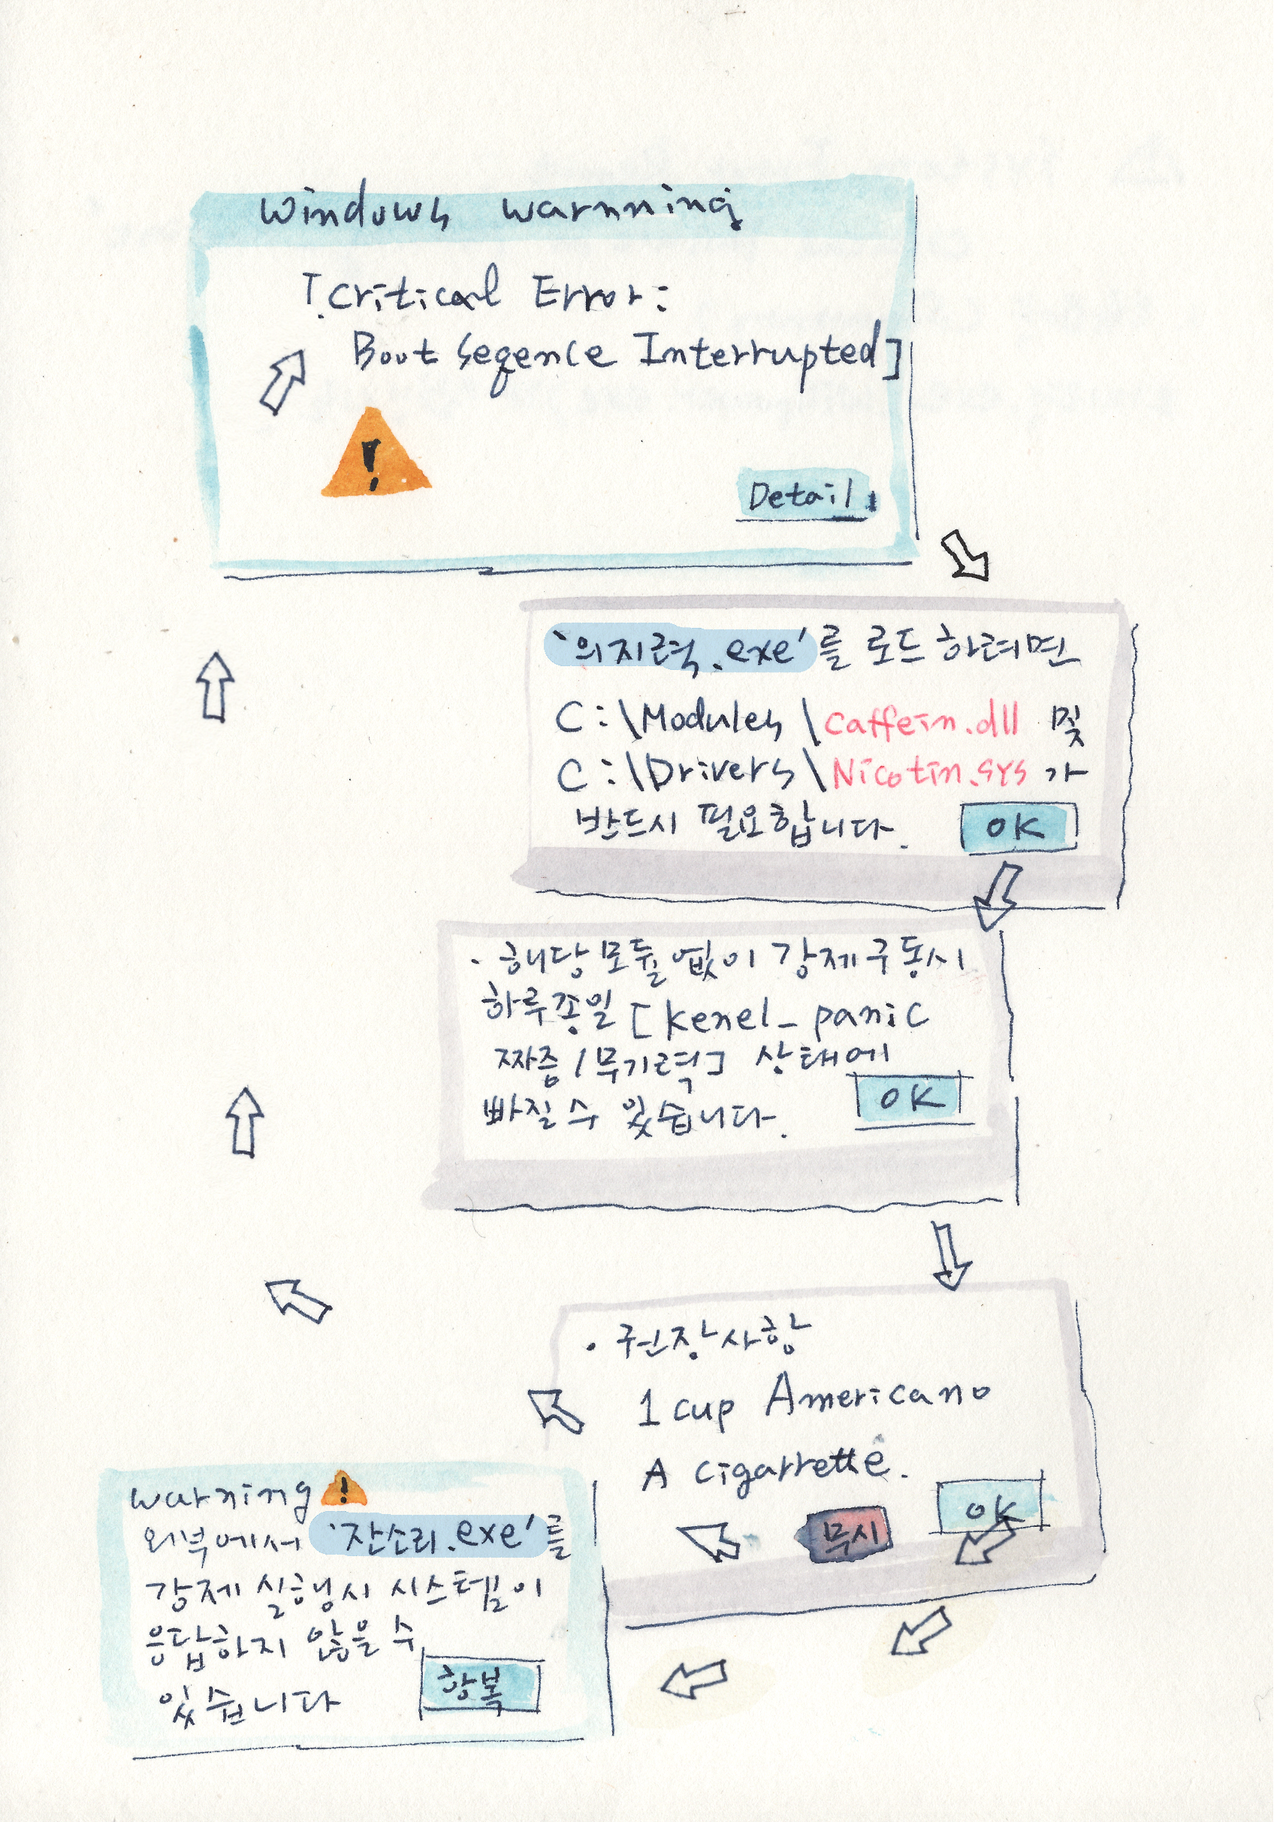 Windows warnning
[critical Error:
Boot Seqence Interrupted]
!
Detail
'의지력.exe'를 로드하려면
C:\Modules\caffein.dll 및
C:\Drivers\Nicotin.sys 가
반드시 필요합니다.
OK
· 해당모듈없이 강제구동시
하루종일 [kenel_panic
짜증/무기력] 상태에
빠질 수 있습니다.
OK
· 권장사항
1 cup Americano
A cigarrette.
무시
OK
warning !
외부에서 '잔소리.exe'를
강제 실행시 시스템이
응답하지 않을 수
있습니다
항복